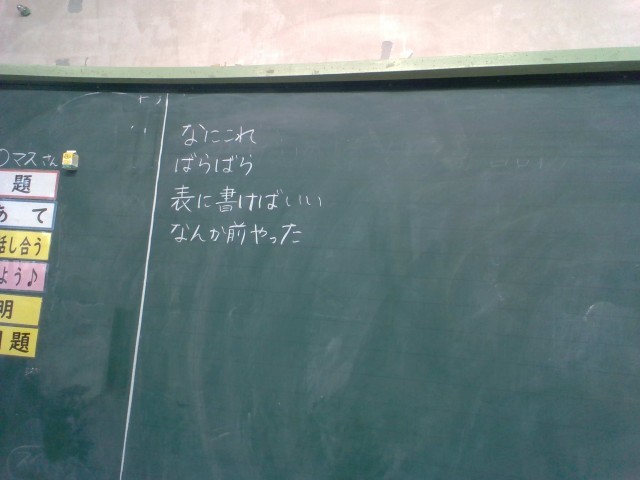 マスさん
題
あて
話し合う
よう♪
明
題
なにこれ
ばらばら
表に書けばいい
なんか前やった